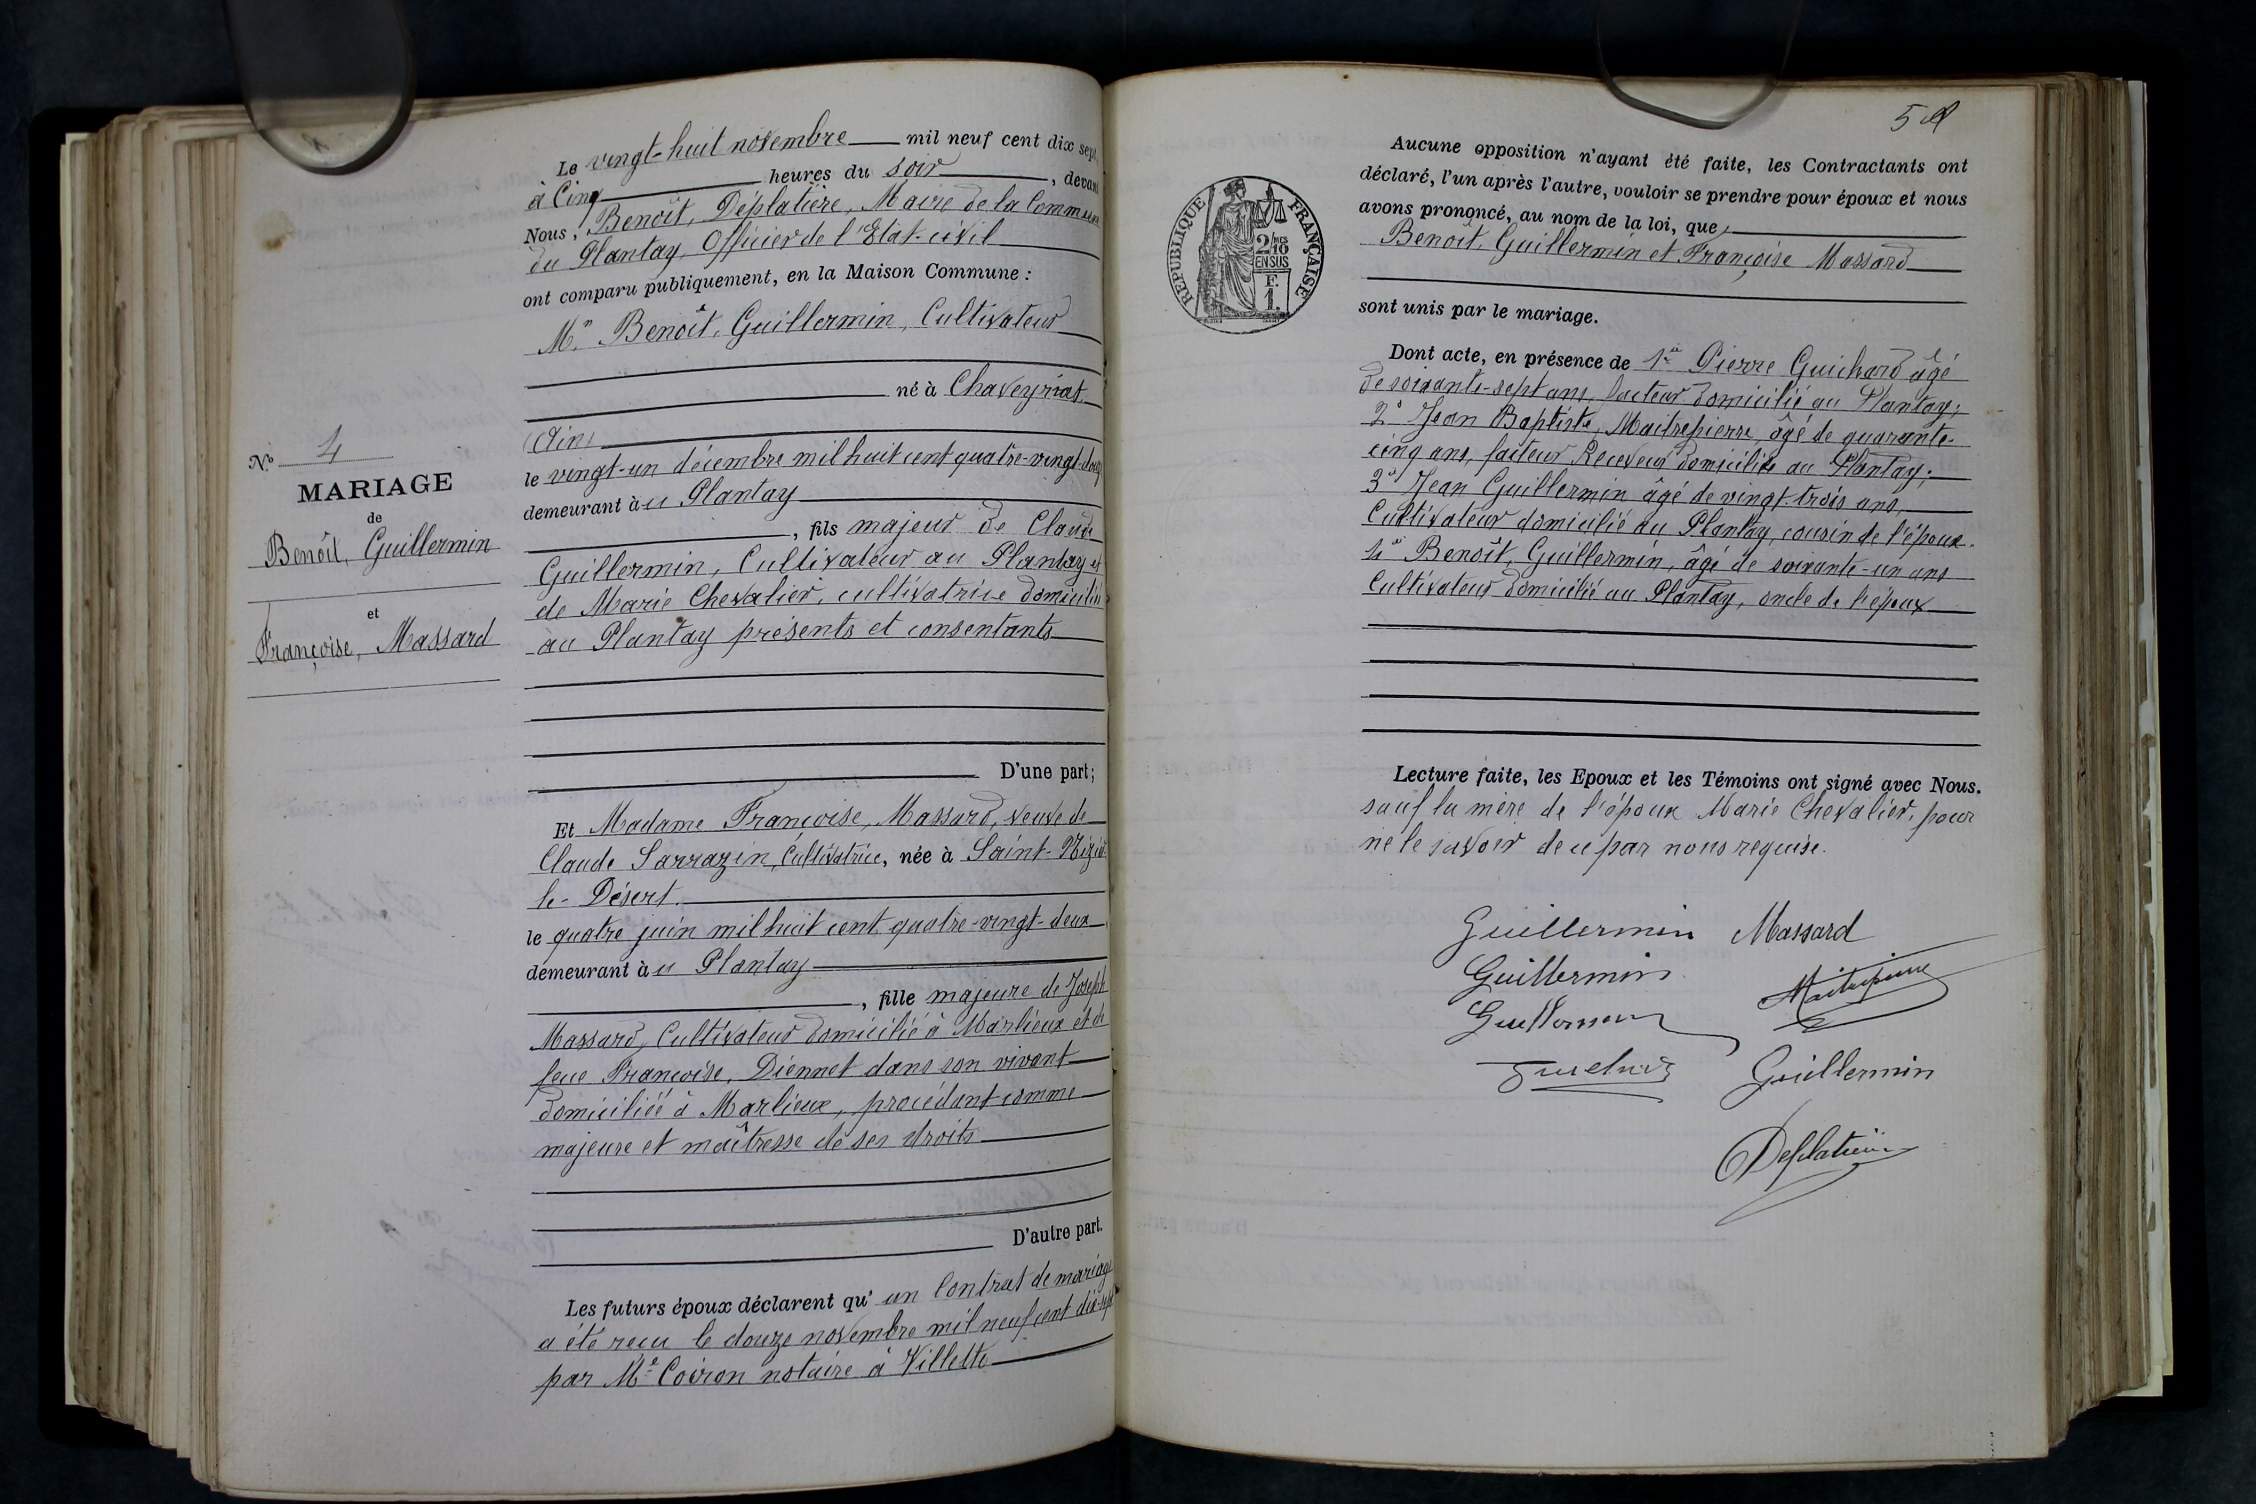 Le vingt-huit novembre mil neuf cent dix sept,
à Cinq heures du soir, devant
Nous, Benoît, Déplatière, Maire de la Commune
du Plantay, Officier de l'Etat-civil
ont comparu publiquement, en la Maison Commune :
Mr Benoît, Guillermin, Cultivateur
né à Chaveyriat
(Ain)
le vingt-un décembre mil huit cent quatre-vingt-douze
demeurant à u Plantay
, fils majeur de Claude
Guillermin, Cultivateur au Plantay et
de Marie Chevalier, cultivatrice domiciliés
au Plantay présents et consentants
D'une part;
Et Madame Françoise, Massard, veuve de
Claude Sarrazin, Cultivatrice, née à Saint-Nizier-
le-Désert.
le quatre juin mil huit cent quatre-vingt-deux
demeurant à u Plantay
, fille majeure de Joseph
Massard, Cultivateur domicilié à Marlieux et de
feue Françoise, Diennet dans son vivant
domiciliée à Marlieux, procédant comme
majeure et maîtresse de ses droits
D'autre part.
Les futurs époux déclarent qu' un Contrat de mariage
a été reçu le douze novembre mil neuf cent dix-sept
par Me Coiron notaire à Villette
No 4
MARIAGE
de
Benoît, Guillermin
et
Françoise, Massard
RÉPUBLIQUE FRANÇAISE
2/10mes
EN SUS
F.
1.
Aucune opposition n'ayant été faite, les Contractants ont
déclaré, l'un après l'autre, vouloir se prendre pour époux et nous
avons prononcé, au nom de la loi, que
Benoît, Guillermin et Françoise Massard
sont unis par le mariage.
Dont acte, en présence de 1° Pierre Guichard âgé
de soixante-sept ans, facteur domicilié au Plantay;
2° Jean Baptiste, Maitrepierre, âgé de quarante-
cinq ans, facteur Receveur domicilié au Plantay;
3° Jean Guillermin âgé de vingt-trois ans,
Cultivateur domicilié au Plantay, cousin de l'époux.
4° Benoît, Guillermin, âgé de soixante-un ans
Cultivateur domicilié au Plantay, oncle de l'époux
Lecture faite, les Epoux et les Témoins ont signé avec Nous.
sauf la mère de l'époux Marie Chevalier, pour
ne le savoir de ce par nous requise.
Guillermin Massard
Guillermin Maitrepierre
Guillermin
Guichard Guillermin
Deplatière